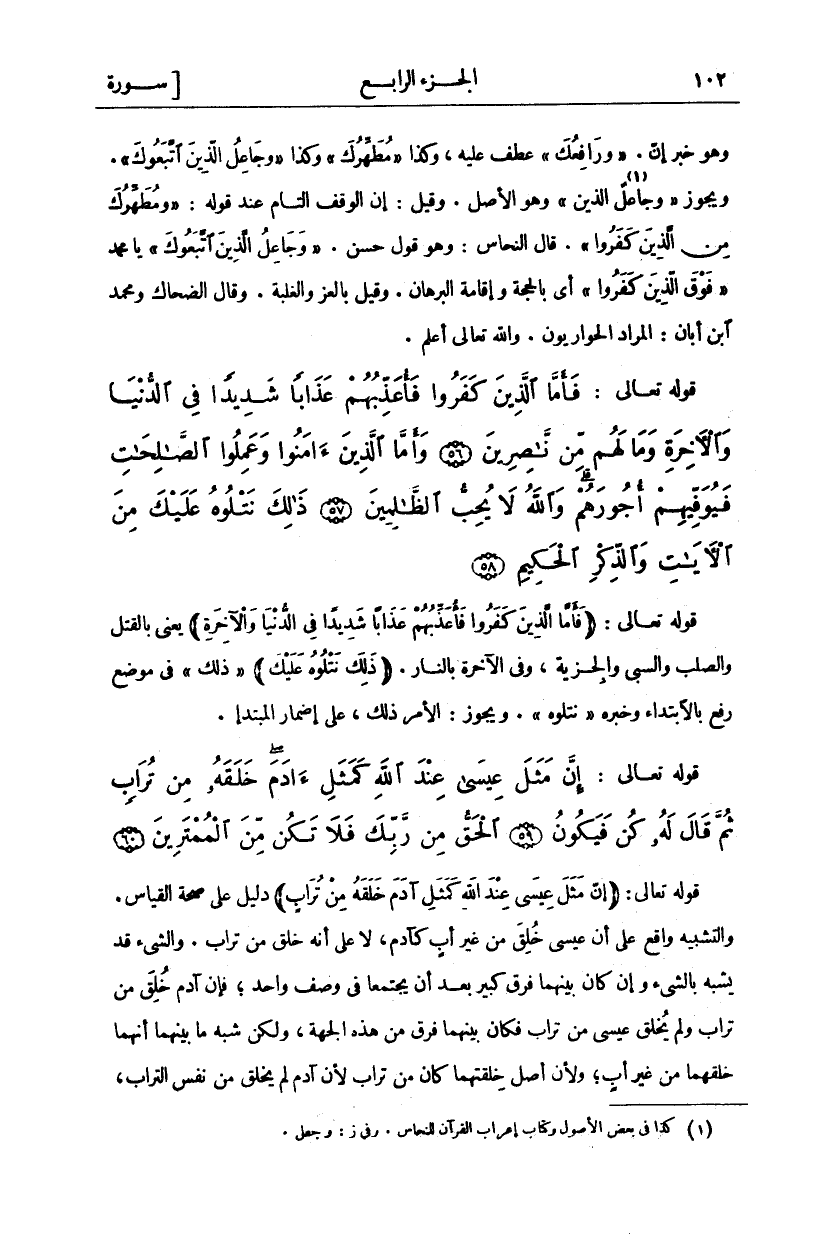 ١٠٢ الجـزء الرابـع [ سـورة
وهو خبر إنّ . « ورَافِعُكَ » عطف عليه ، وكذا « مُطَهِّرُكَ » وكذا « وجَاعِلُ الَّذِينَ ٱتَّبَعُوكَ » .
ويجوز « وجاعلٌ الذين »(١) وهو الأصل . وقيل : إن الوقف التـام عند قوله : « ومُطَهِّرُكَ
مِنَ الَّذِينَ كَفَرُوا » . قال النحاس : وهو قول حسن . « وَجَاعِلُ الَّذِينَ ٱتَّبَعُوكَ » يا محمد
« فَوْقَ الَّذِينَ كَفَرُوا » أى بالحجة وإقامة البرهان . وقيل بالعز والغلبة . وقال الضحاك ومحمد
ٱبن أبان : المراد الحواريون . والله تعالى أعلم .
قوله تعـالى : فَأَمَّا ٱلَّذِينَ كَفَرُوا فَأُعَذِّبُهُمْ عَذَابًا شَدِيدًا فِى ٱلدُّنْيَا
وَٱلْأَخِرَةِ وَمَا لَهُم مِّن نَّـٰصِرِينَ ﴿٥٦﴾ وَأَمَّا ٱلَّذِينَ ءَامَنُوا وَعَمِلُوا ٱلصَّـٰلِحَـٰتِ
فَيُوَفِّيهِمْ أُجُورَهُمْ ۗ وَٱللَّهُ لَا يُحِبُّ ٱلظَّـٰلِمِينَ ﴿٥٧﴾ ذَٰلِكَ نَتْلُوهُ عَلَيْكَ مِنَ
ٱلْأَيَـٰتِ وَٱلذِّكْرِ ٱلْحَكِيمِ ﴿٥٨﴾
قوله تعـالى : ﴿ فَأَمَّا الَّذِينَ كَفَرُوا فَأُعَذِّبُهُمْ عَذَابًا شَدِيدًا فِى الدُّنْيَا وَالْآخِرَةِ ﴾ يعنى بالقتل
والصلب والسبى والجـزية ، وفى الآخرة بالنـار . ﴿ ذَلِكَ نَتْلُوهُ عَلَيْكَ ﴾ « ذلك » فى موضع
رفع بالٱبتداء وخبره « نتلوه » . ويجوز : الأمر ذلك ، على إضمار المبتدإ .
قوله تعـالى : إِنَّ مَثَلَ عِيسَىٰ عِندَ ٱللَّهِ كَمَثَلِ ءَادَمَ ۖ خَلَقَهُۥ مِن تُرَابٍ
ثُمَّ قَالَ لَهُۥ كُن فَيَكُونُ ﴿٥٩﴾ ٱلْحَقُّ مِن رَّبِّكَ فَلَا تَكُن مِّنَ ٱلْمُمْتَرِينَ ﴿٦٠﴾
قوله تعالى : ﴿ إنَّ مَثَلَ عِيسَى عِنْدَ اللهِ كَمَثَلِ آدَمَ خَلَقَهُ مِنْ تُرَابٍ ﴾ دليل على صحة القياس .
والتشبيه واقع على أن عيسى خُلِقَ من غير أبٍ كآدم ، لا على أنه خلق من تراب . والشىء قد
يشبه بالشىء وإن كان بينهما فرق كبير بعـد أن يجتمعا فى وصف واحد ؛ فإن آدم خُلِقَ من
تراب ولم يُخلق عيسى من تراب فكان بينهما فرق من هذه الجهة ، ولكن شبه ما بينهما أنهما
خلقهما من غير أبٍ ؛ ولأن أصل خِلقتهما كان من تراب لأن آدم لم يخلق من نفس التراب ،
(١) كذا فى بعض الأصول وكتاب إعراب القرآن للنحاس . وفى ز : وجعل .